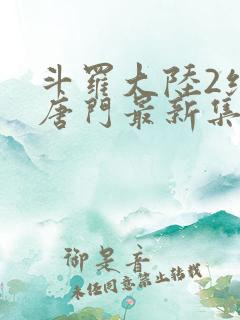 斗羅大陸2絶
唐門最新集
御是音
未任同意禁止转載